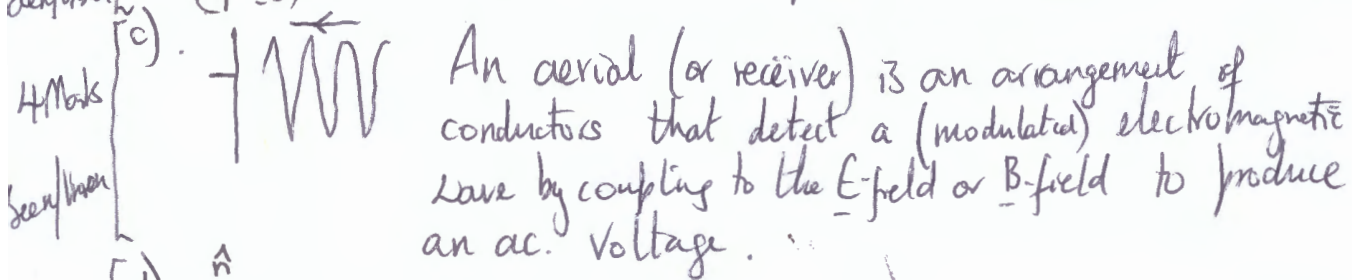 c).
4 Marks
An aerial (or receiver) is an arrangement of
conductors that detect a (modulated) electromagnetic
wave by coupling to the E-field or B-field to produce
an ac. voltage.
n̂